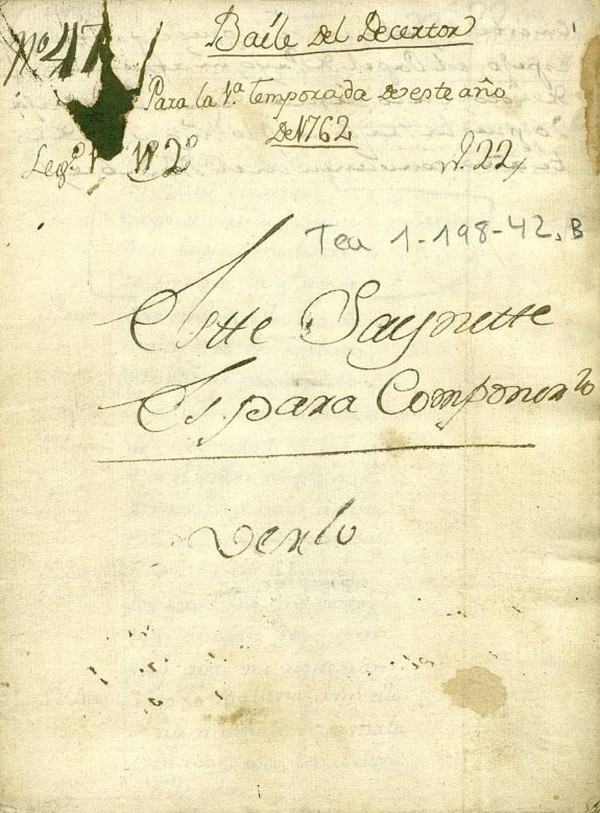 Nº 47
Baile del Decertor
Para la 1ª. Temporada de este año
De 1762
Legº. 1º Nº 2º
n. 22,
Tea 1-198-42, B
Estte Saynette
Es para Componerlo
Verlo